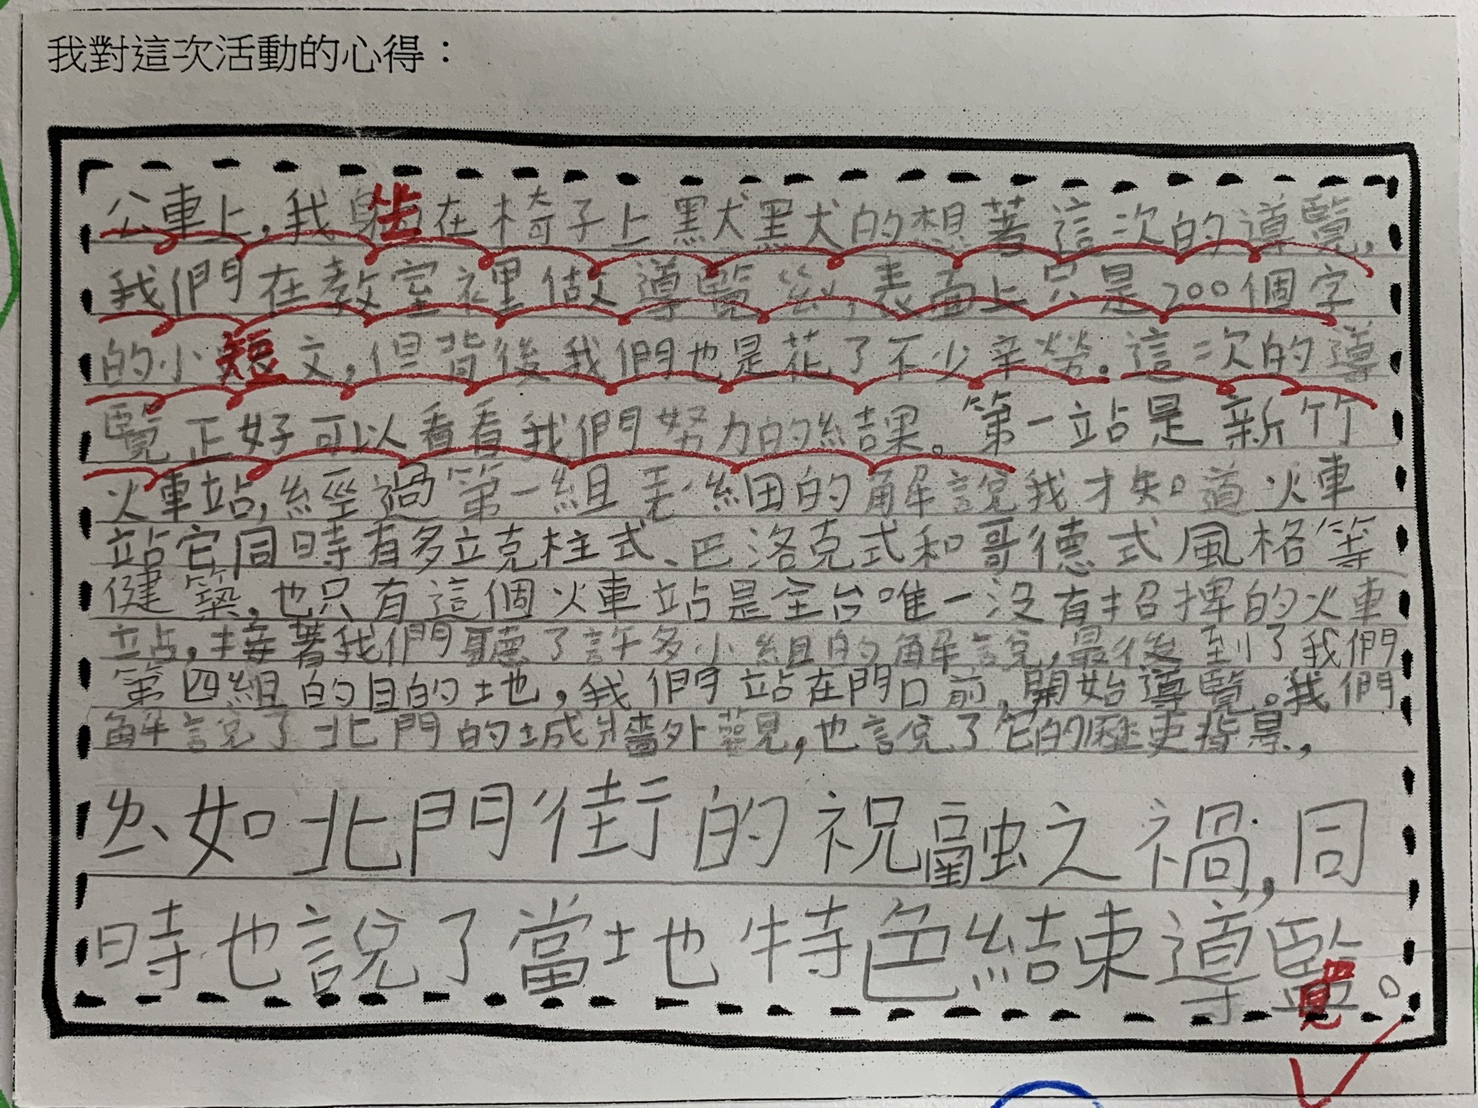 我對這次活動的心得：
公車上，我坐在椅子上默默的想著這次的導覽，
我們在教室裡做導覽卷，表面上只是200個字
的小短文，但背後我們也是花了不少辛勞。這次的導
覽正好可以看看我們努力的結果。第一站是新竹
火車站，經過第一組 細的解說我才知道火車
站它同時有多立克柱式、巴洛克式和哥德式風格等
健築，也只有這個火車站是全台唯一沒有招牌的火車
站，接著我們聽了許多小組的解說，最後到了我們
第四組的目的地，我們站在門口前，開始導覽。我們
解說了北門的城牆外觀，也說了它的歷史背景，
如北門街的祝融之禍，同
時也說了當地特色結束導覽。